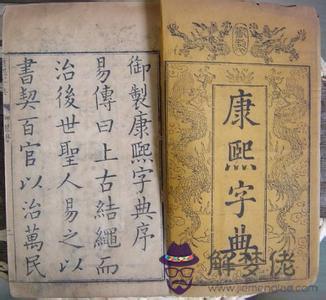 康熙字典
御製康熙字典序
易傳曰上古結繩而
治後世聖人易之以
書契百官以治萬民
解梦佬